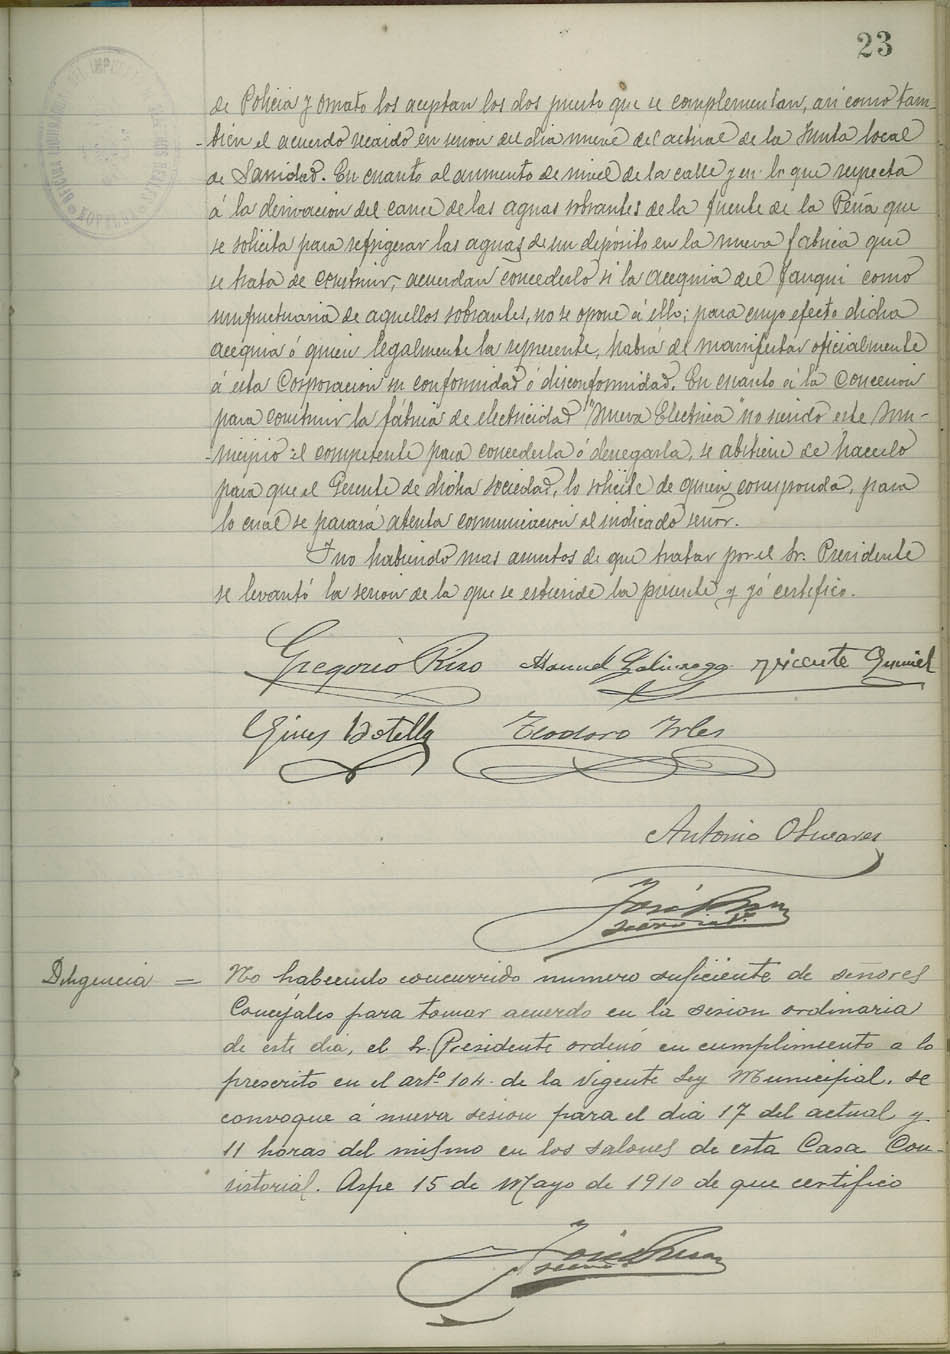 23
de Policia y Ornato los aceptan los dos puesto que se complementan, asi como tam-
-bién el acuerdo recaido en sesion del dia nueve del actual de la Junta local
de Sanidad. En cuanto al aumento de nivel de la calle y en lo que respecta
á la derivacion del cauce de las aguas sobrantes de la fuente de la Peña que
se solicita para refrigerar las aguas de un depósito en la nueva fabrica que
se trata de construir, acuerdan concederlo si la acequia del Fauqui como
usufructuaria de aquellos sobrantes, no se opone á ello; para cuyo efecto dicha
acequia ó quien legalmente la represente, habra de manifestar oficialmente
á esta Corporacion su conformidad ó disconformidad. En cuanto á la concesion
para construir la fábrica de electricidad "Nueva Electrica" no siendo este Mu-
-nicipio el competente para concederla ó denegarla, se abstiene de hacerlo
para que el Gerente de dicha sociedad, lo solicite de quien corresponda, para
lo cual se pasará atenta comunicacion al indicado señor.
Y no habiendo mas asuntos de que tratar por el Sr. Presidente
se levantó la sesion de la que se estiende la presente y yó certifico.
Gregorio Rizo Manuel Vicente
Gines Botella Teodoro Irles
Antonio Olivares
José
Secretario
Diligencia = No habiendo concurrido numero suficiente de señores
Concejales para tomar acuerdo en la sesion ordinaria
de este dia, el Sr. Presidente ordenó en cumplimiento a lo
prescrito en el artº 104 de la vigente Ley Municipal, se
convoque á nueva sesion para el dia 17 del actual y
11 horas del mismo en los salones de esta Casa Con-
sistorial. Aspe 15 de Mayo de 1910 de que certifico
José